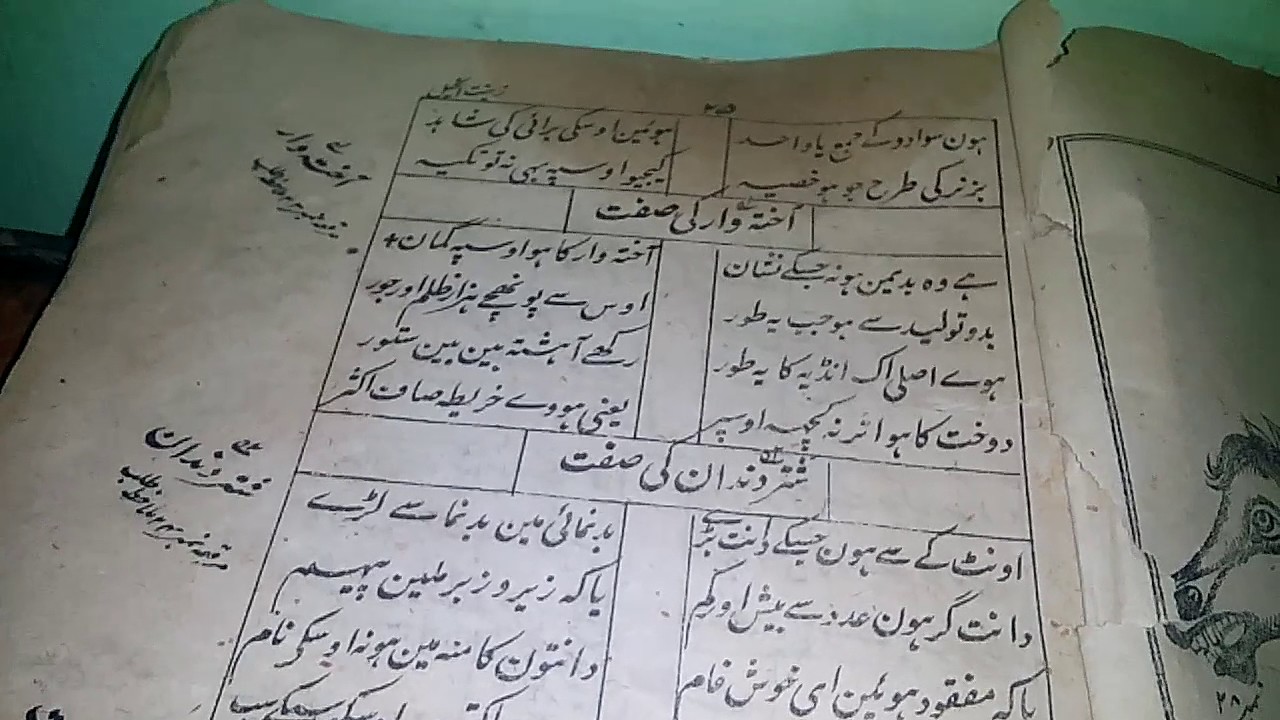 زینت الخیل
۲۵
ہون سوا دو کے جمع یا واحد
ہوئین اوسکی برائی کی شاہد
بزنر کی طرح جو ہو خصیہ
کیجیو اوسپہ بہی نہ تو تکیہ
آختہ وار کی صفت
ہے وہ بدیمن ہونہ جسکے نشان
آختہ وار کا ہو اوسپہ گمان
بد و تولید سے بموجب یہ طور
اوس سے پونھچے ہزار ظلم اور جور
ہوے اصلی اک انڈیہ کا یہ طور
رکھے آہشتہ بین بین ستور
دوخت کا ہو اثر نہ کچہہ اوسپر
یعنی ہووے خریطہ صاف اکثر
شتر دندان کی صفت
شتر دندان
اونٹ کے سے ہون جسکے دانت بڑے
بدنمائی مین بدنما سے لڑے
دانت گر ہون عدد سے بیش او کم
یا کہ زیر و زبر ملین پیہم
یا کہ مفقود ہوئین ای خوش فام
دانتون کا منہ مین ہونہ اوسکے نام
نمبر ۲۸